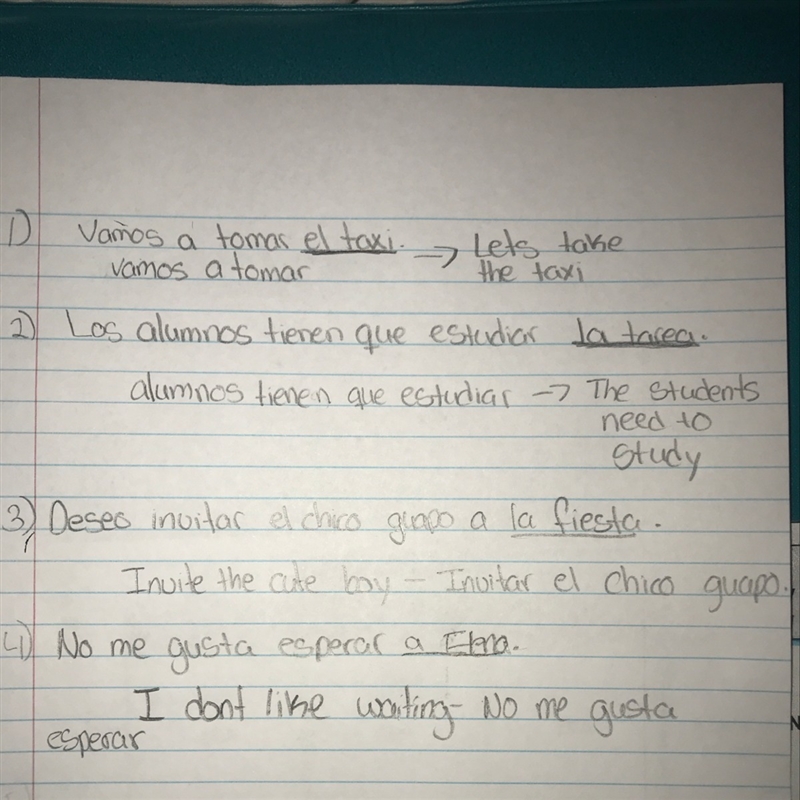 1) Vamos a tomar el taxi. → Lets take
vamos a tomar the taxi
2) Los alumnos tienen que estudiar la tarea.
alumnos tienen que estudiar → The students
need to
study
3) Deseo invitar el chico guapo a la fiesta.
Invite the cute boy - Invitar el chico guapo.
4) No me gusta esperar a
I dont like waiting - No me gusta
esperar